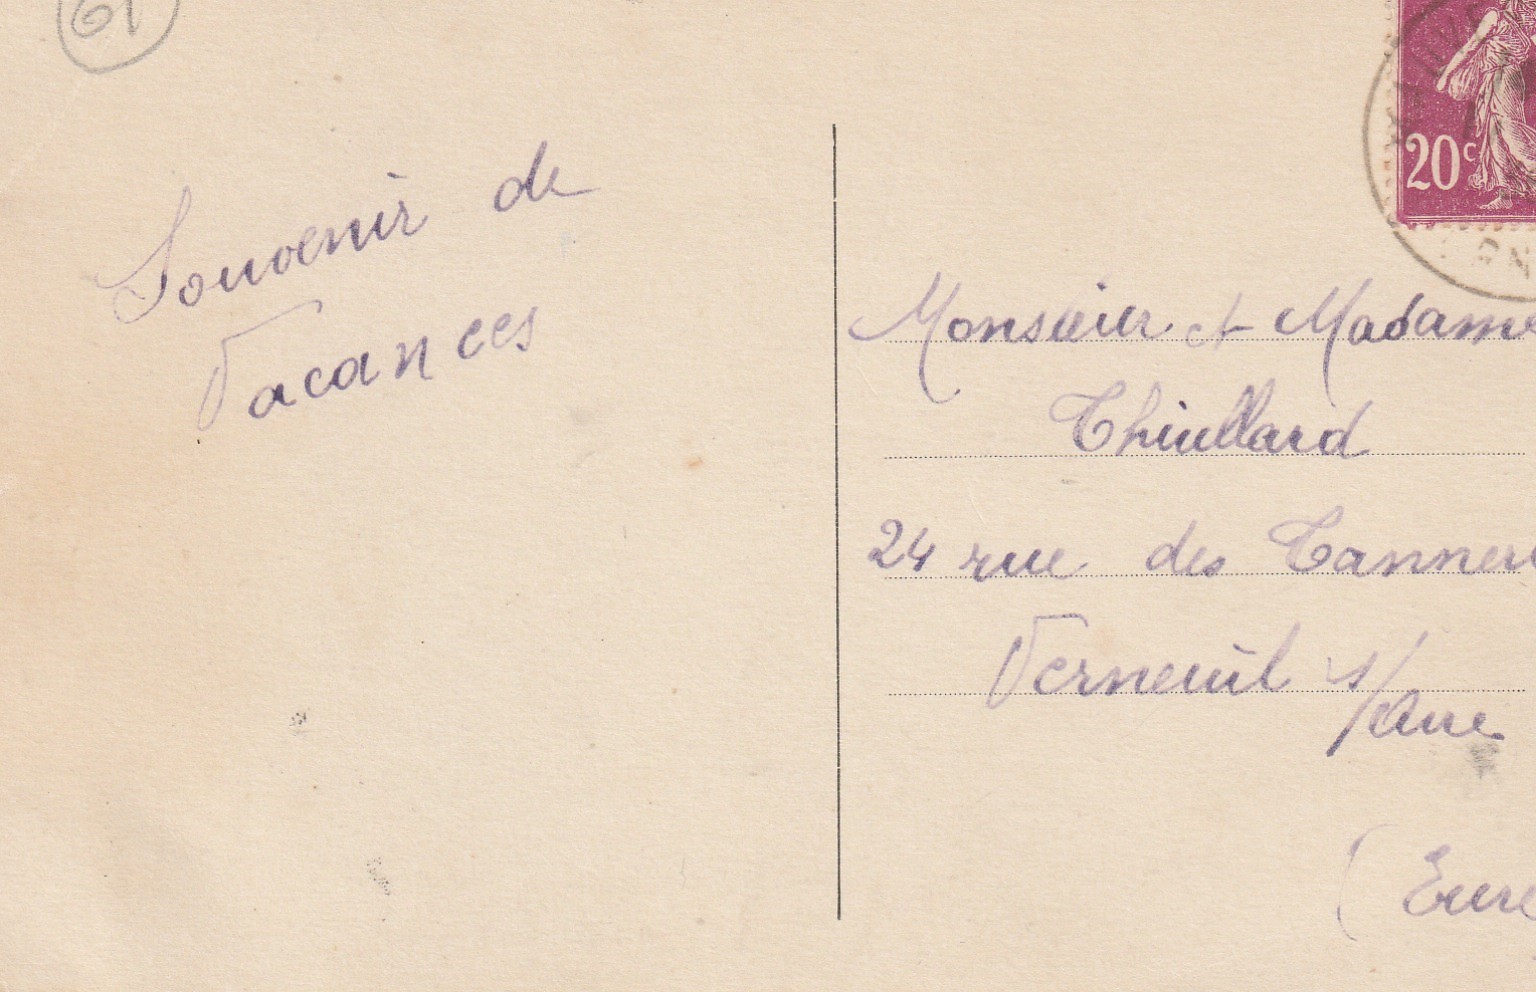 61
Souvenir de
Vacances
20c
Monsieur et Madame
Thiullard
24 rue des
Verneuil s/
Avre
(Eure